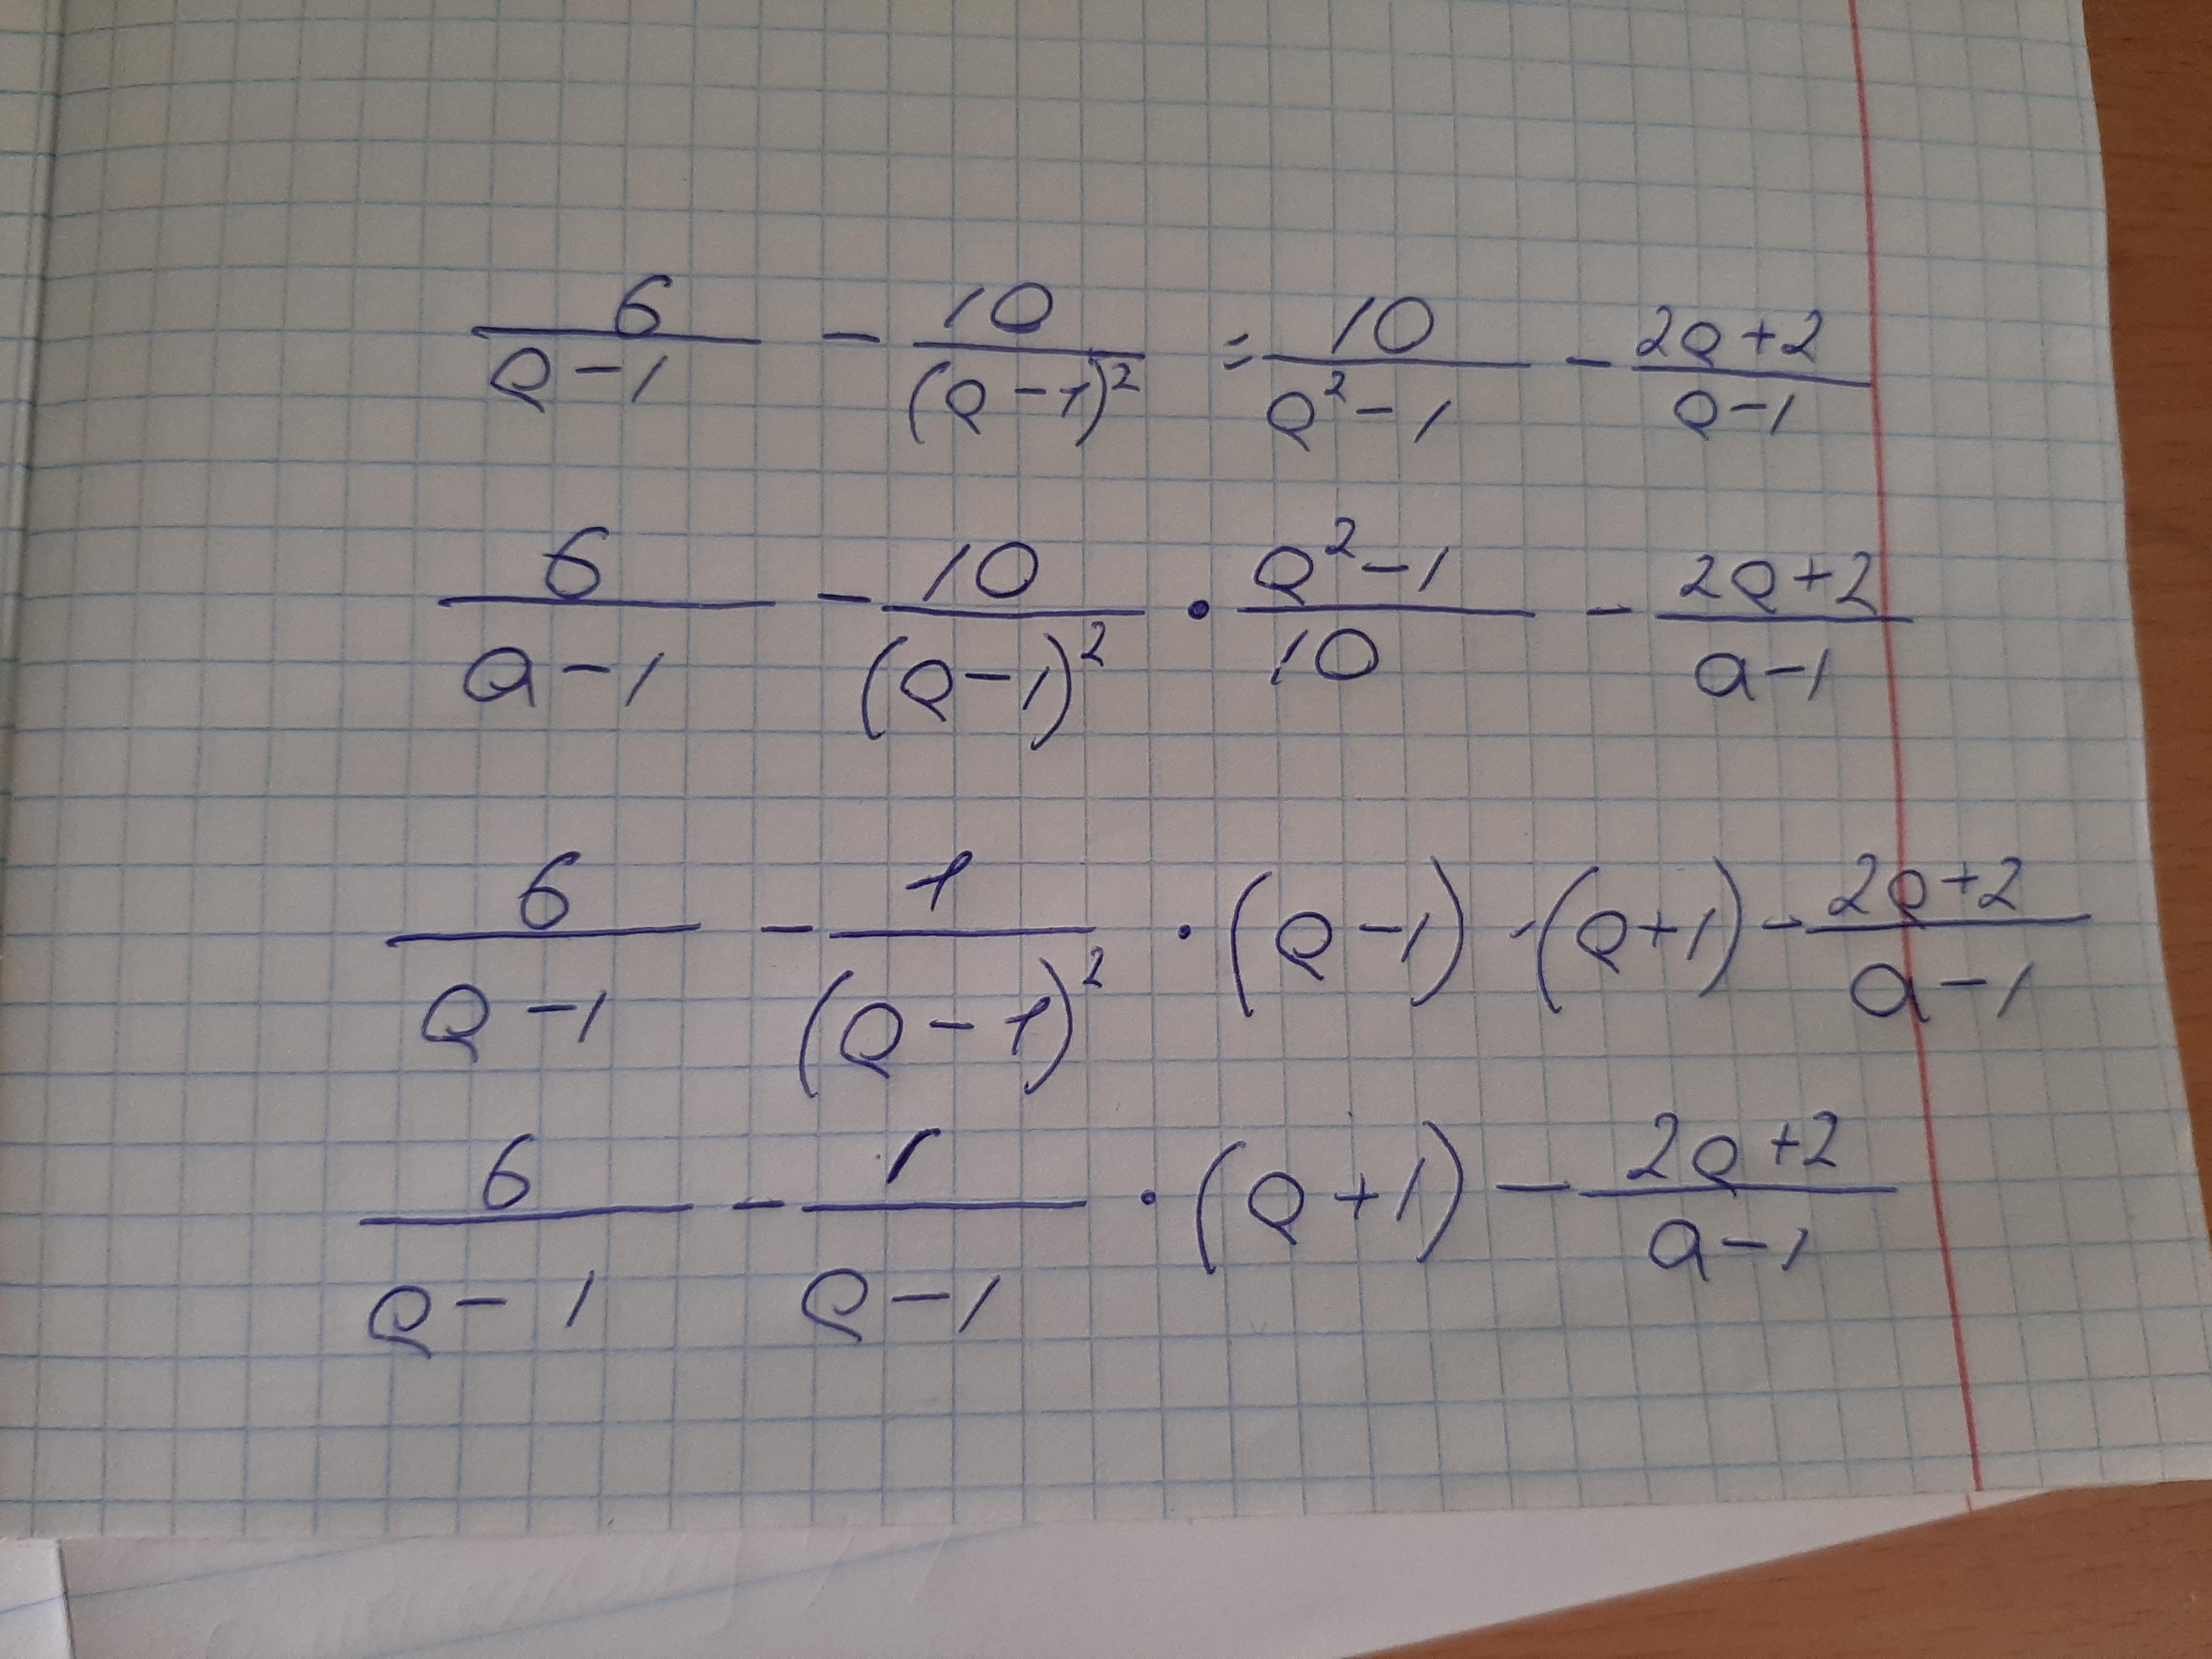 6/(a-1) - 10/(a-1)² = 10/(a²-1) - (2a+2)/(a-1)
6/(a-1) - 10/(a-1)² · (a²-1)/10 - (2a+2)/(a-1)
6/(a-1) - 1/(a-1)² · (a-1) · (a+1) - (2a+2)/(a-1)
6/(a-1) - 1/(a-1) · (a+1) - (2a+2)/(a-1)